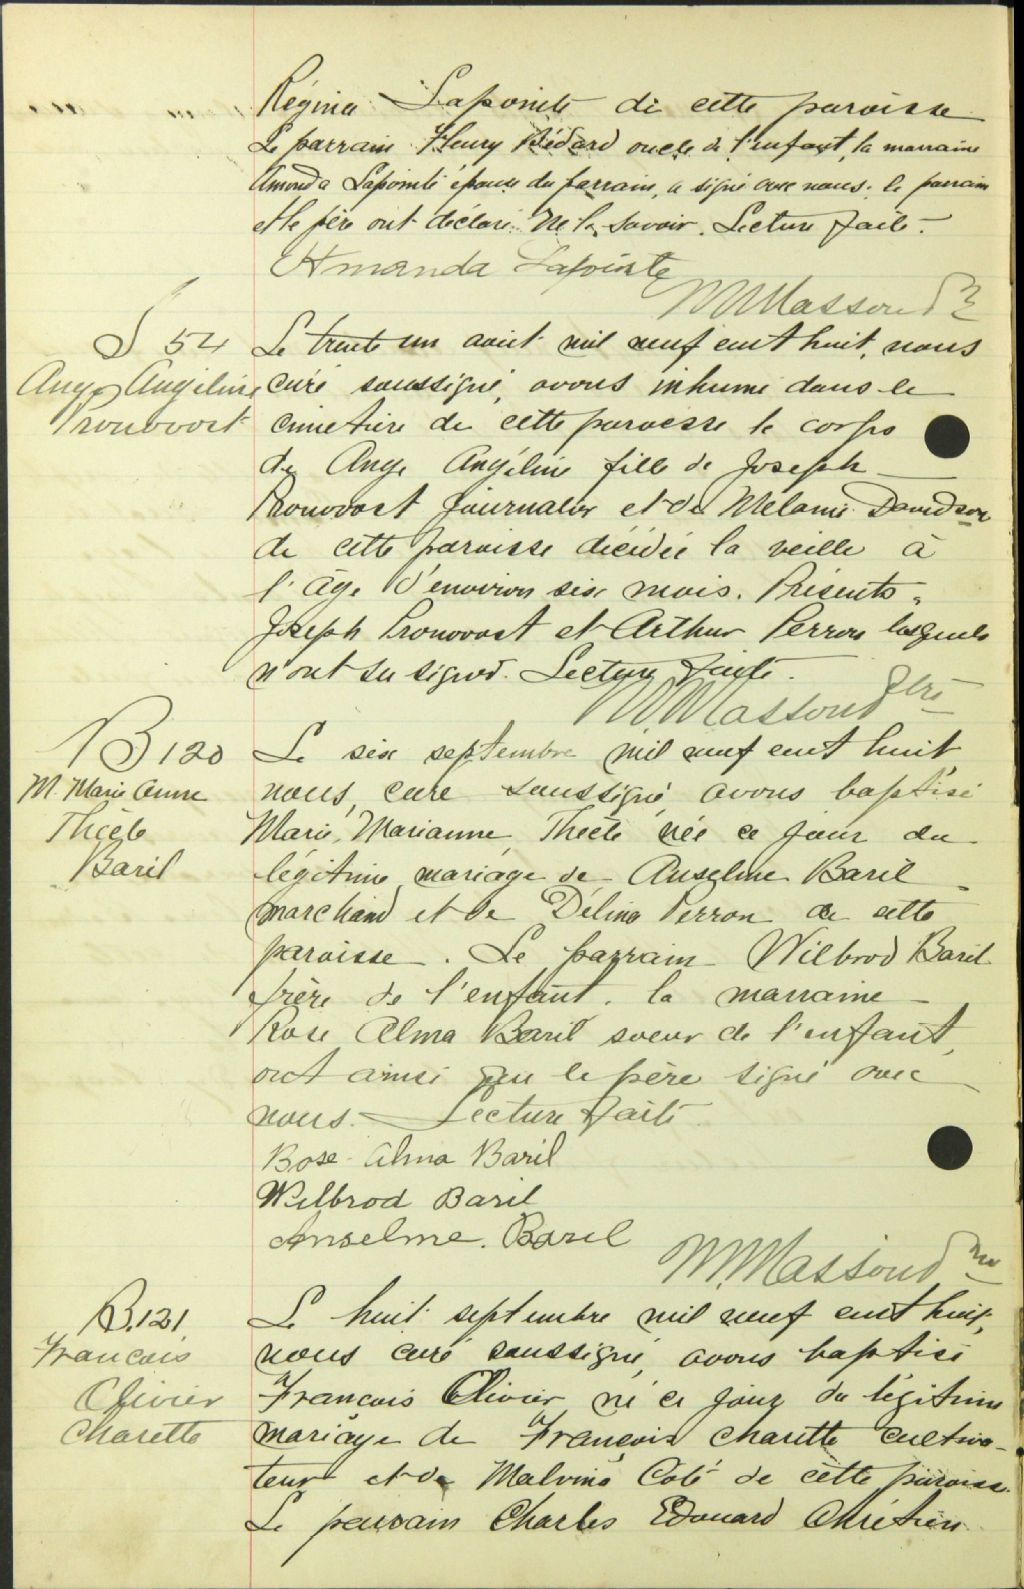 Régina Lapointe de cette paroisse
Le parrain Fleury Bédard oncle de l'enfant, la marraine
Amanda Lapointe épouse du parrain, a signé avec nous. le parrain
et le père ont déclaré ne le savoir. Lecture faite.
Amanda Lapointe
M Massoud
S 54
Ange Angéline
Pronovost
Le trente un août mil neuf cent huit, nous
curé soussigné, avons inhumé dans le
cimetière de cette paroisse le corps
de Ange Angéline fille de Joseph
Pronovost journalier et de Mélanie Davidson
de cette paroisse décédée la veille à
l'âge d'environ six mois. Présents
Joseph Pronovost et Arthur Perron lesquels
n'ont su signer. Lecture faite.
M Massoud Ptre
B 120
M. Marie Anne
Thècle
Baril
Le six septembre mil neuf cent huit
nous, curé soussigné avons baptisé
Marie, Marianne, Thècle née ce jour du
légitime mariage de Anselme Baril
marchand et de Délina Perron de cette
paroisse. Le parrain Wilbrod Baril
frère de l'enfant. la marraine
Rose Alma Baril soeur de l'enfant,
ont ainsi que le père signé avec
nous. Lecture faite
Rose Alma Baril
Wilbrod Baril
Anselme. Baril
M. Massoud
B.121
Francois
Olivier
Charette
Le huit septembre mil neuf cent huit,
nous curé soussigné, avons baptisé
Francois Olivier né ce jour du légitime
mariage de François Charette cultiva-
teur et de Malvina Coté de cette paroisse.
Le parrain Charles Edouard Chrétien